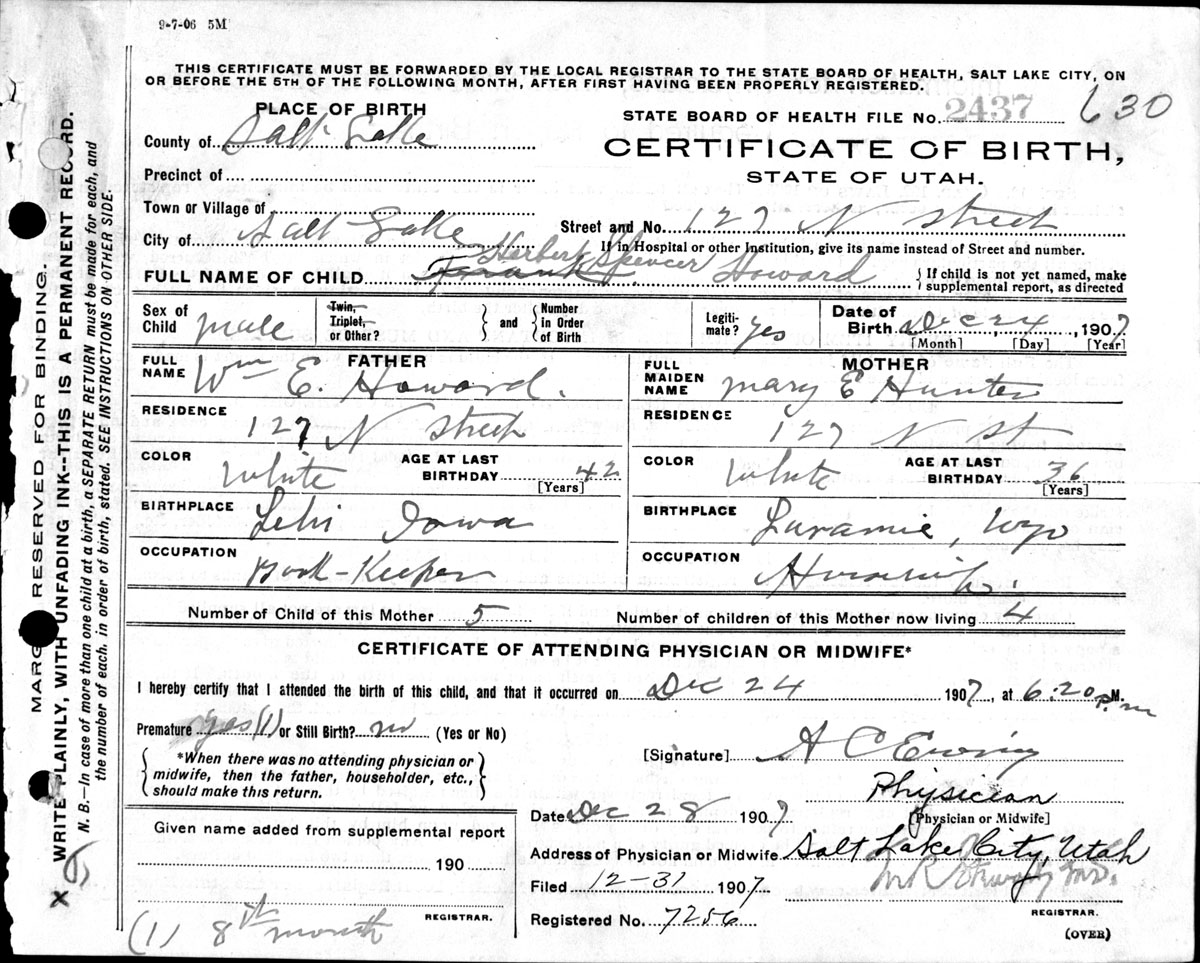 9-7-06 5M
THIS CERTIFICATE MUST BE FORWARDED BY THE LOCAL REGISTRAR TO THE STATE BOARD OF HEALTH, SALT LAKE CITY, ON
OR BEFORE THE 5TH OF THE FOLLOWING MONTH, AFTER FIRST HAVING BEEN PROPERLY REGISTERED.
PLACE OF BIRTH
STATE BOARD OF HEALTH FILE No. 2437 630
County of Salt Lake
CERTIFICATE OF BIRTH,
STATE OF UTAH.
Precinct of
Town or Village of
Street and No. 127 N Street
City of Salt Lake
If in Hospital or other Institution, give its name instead of Street and number.
Herbert Spencer
FULL NAME OF CHILD Frank J. Howard
If child is not yet named, make
supplemental report, as directed
Sex of Child male
Twin, Triplet, or Other?
and
Number in Order of Birth
Legitimate? yes
Date of Birth Dec 24, 1907
[Month] [Day] [Year]
FATHER
FULL NAME Wm E. Howard.
RESIDENCE 127 N Street
COLOR White
AGE AT LAST BIRTHDAY 42
[Years]
BIRTHPLACE Lehi Iowa
OCCUPATION Book-Keeper
MOTHER
FULL MAIDEN NAME Mary E Hunter
RESIDENCE 127 N St
COLOR White
AGE AT LAST BIRTHDAY 36
[Years]
BIRTHPLACE Laramie, Wyo
OCCUPATION
Number of Child of this Mother 5
Number of children of this Mother now living 4
CERTIFICATE OF ATTENDING PHYSICIAN OR MIDWIFE*
I hereby certify that I attended the birth of this child, and that it occurred on Dec 24 1907, at 6:20 P.M.
P.m
Premature yes (1) or Still Birth? no (Yes or No)
*When there was no attending physician or
midwife, then the father, householder, etc.,
should make this return.
[Signature] A C Ewing
Physician
[Physician or Midwife]
Date Dec 28 1907
Given name added from supplemental report
190
REGISTRAR.
(1) 8th month
Address of Physician or Midwife Salt Lake City, Utah
Filed 12-31 1907
Registered No. 7256
REGISTRAR.
(OVER)
MARGIN RESERVED FOR BINDING.
WRITE PLAINLY, WITH UNFADING INK--THIS IS A PERMANENT RECORD.
N. B.—In case of more than one child at a birth, a SEPARATE RETURN must be made for each, and
the number of each. in order of birth, stated. SEE INSTRUCTIONS ON OTHER SIDE.
X